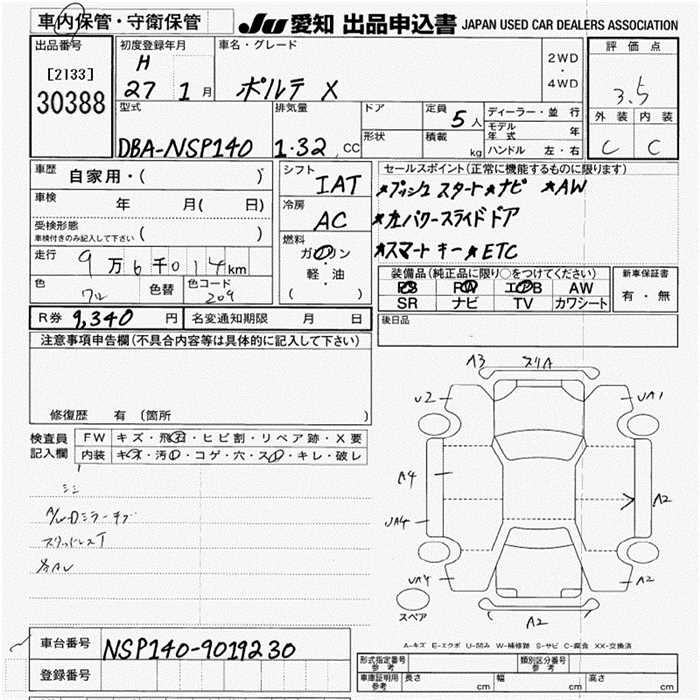 車内保管・守衛保管
JU 愛知 出品申込書 JAPAN USED CAR DEALERS ASSOCIATION
出品番号
[2133]
30388
初度登録年月
H
27 1月
車名・グレード
ポルテ X
2WD
・
4WD
評価点
3.5
外装 内装
C C
型式
DBA-NSP140
排気量
1.32 CC
ドア
形状
定員 5人
積載 kg
ディーラー・並行
モデル年式 年
ハンドル 左・右
車歴
自家用・( )
車検 年 月( 日)
受検形態
車検付きのみ記入して下さい ( )
走行 9万6千014km
色 色替 色コード
209
シフト
IAT
冷房
AC
燃料
ガソリン
・
軽・油
( )
セールスポイント(正常に機能するものに限ります)
★プッシュスタート★ナビ ★AW
★左パワースライドドア
★スマートキー★ETC
装備品(純正品に限り○をつけてください)
PS PW エアB AW
SR ナビ TV カワシート
新車保証書
有・無
R券 9,340円
名変通知期限 月 日
後日品
注意事項申告欄(不具合内容等は具体的に記入して下さい)
修復歴 有 (箇所 )
検査員
記入欄
FW キズ・飛石・ヒビ割・リペア跡・X要
内装 キズ・汚レ・コゲ・穴・スレ・キレ・破レ
A3 スリA
U2 UA1
A4 A2
UA4
UA4 A2
スペア
A2
A-キズ E-エクボ U-凹み W-補修跡 S-サビ C-腐食 XX-交換済
車台番号 NSP140-9019230
登録番号
形式指定番号
参考
類別区分番号
参考
車庫証明用
参考
長さ cm 幅 cm 高さ cm